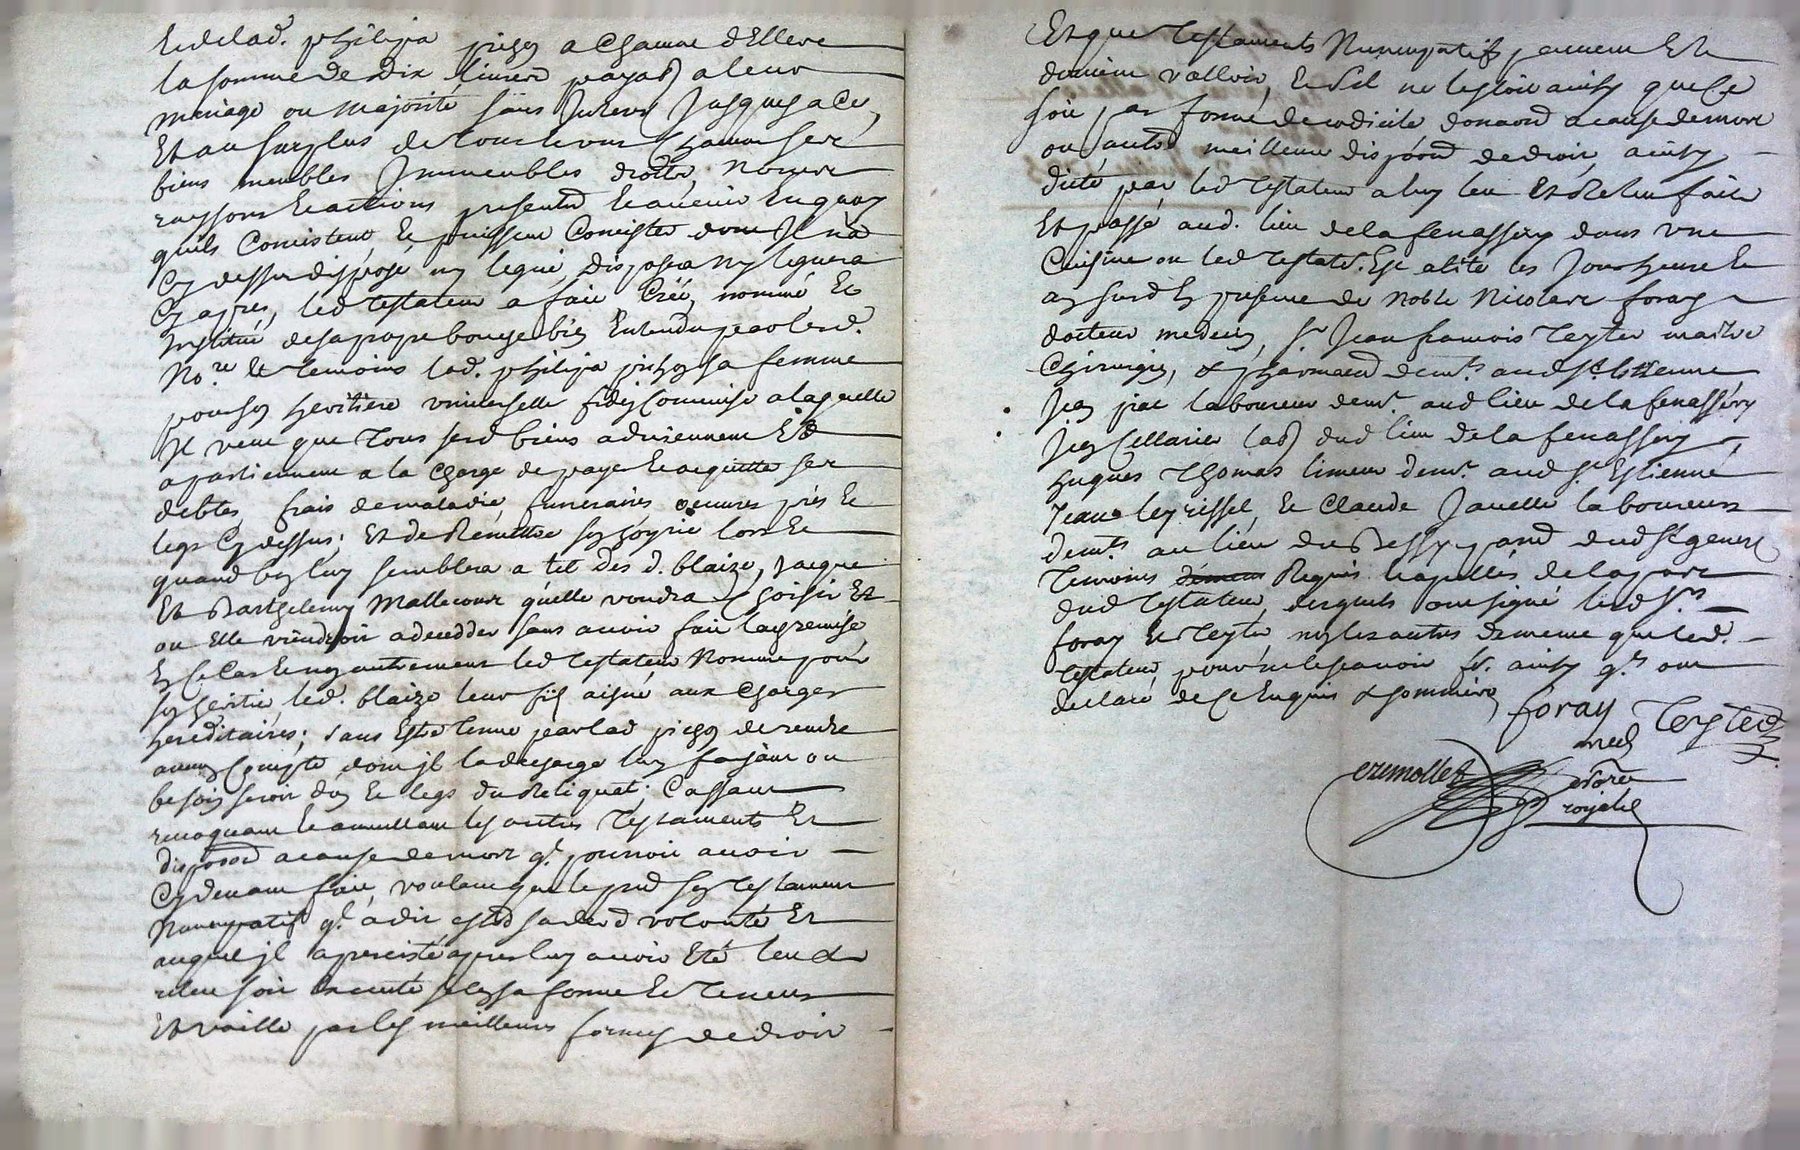 et de lad. philipa pichon a Chacune d'Elles
la somme de dix livres payab a leur
mariage ou majorité sans Interest Jusques a ce,
Et au surplus de tous et uns Chacuns ses
biens meubles Immeubles droits noms
raysons et actions presents et avenir en quoy
quils Consistent et puissent Consister dont Il na
Cy dessus disposé ny legué, disposera ny leguera
Cy apres, led testateur a fait Créé, nommé et
Institué de sa propre bouche bien Entendu par lesd.
No.re et temoins lad. philipa pichon sa femme
pour son heritiere universelle fideycommise a laquelle
Il veut que tous sesd biens adviennent Et
apartiennent a la charge de payer et acquitter ses
debtes, frais de maladie, funeraires œuvres pies et
legs Cy dessus; Et de Remettre son hoyrie lors et
quand bon luy semblera a tel des d. blaize, Jacque
Et Barthelemy Mallecour quelle voudra Choisir Et
ou Elle viendroit a decedder sans avoir fait lad remise
En Ce Cas et non autrement led testateur Nomme pour
son heritier led. blaize leur fils aisné aux Charges
hereditaires; sans Estre tenue par lad pichon de rendre
aucun Compte dont il la decharge luy faisant ou
besoin seroit don et legs du Reliquat; Cassant
revoquant et annullant les autres Testaments Et
dispoons a cause de mort q.l pourroit avoir
Cy devant fait, voulant que le pnt son Testament
Nuncupatif q.l a dit estre sa der.e volonté Et
auquel il a percisté apres luy avoir Eté leu &
releu soit Executé selon sa forme et teneur
Et vaille par les meilleurs formes de droit
Et que testaments Nuncupatifs peuvent Et
doivent valloir, et s'il ne les toit ainsy que Ce
soit par forme de codicile donaon a cause de mort
ou autre meilleure dispoon de droit, ainsy
dicté par led Testateur a luy leu Et Releu fait
Et passé aud. lieu de la fenassery dans une
Cuisine ou led testat.r Est alité les Jour heure et
an susd En presence de Noble Nicolas foray
docteur medecin, Sr Jean francois teyter maitre
Chirurgien, & pharmacien demt. aud St Estienne
Jean piat laboureur demt. aud lieu de la fenassery
Jean Cellarier lab dud lieu de la fenassery
hugues Thomas limeur demt. aud St Estienne
Jean leyrissel et Claude Javelle laboureurs
demts au lieu du Bessy pand dud St genest
Temoins Requis et apellés de la part
dud testateur, desquels ont signé lesd Srs
foray et Teyter ny les autres de meme que led.
testateur pour ne le scavoir fe. ainsy q.ls ont
declaré de Ce Enquis & sommés
foray
med
Teyter
cremollet
nore
royal